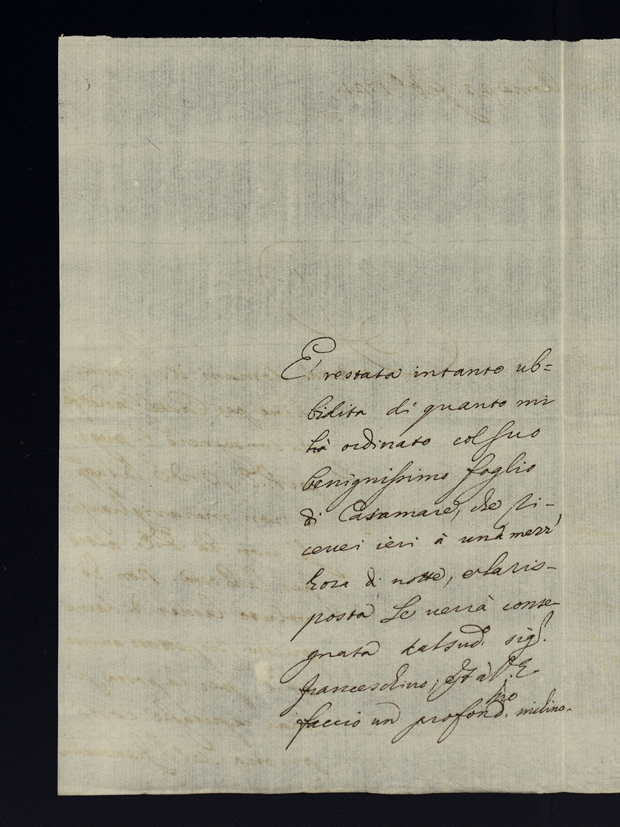 E restata intanto ub=
bidita di quanto mi
hà ordinato col suo
benignissimo foglio
di Casamare, che ri-
cevei ieri à una mezz'
hora di notte, e la ris-
posta le verrà conse-
gnata dal sud.º sig.r
franceschino, et à V. E
faccio un profond.mo inchino.